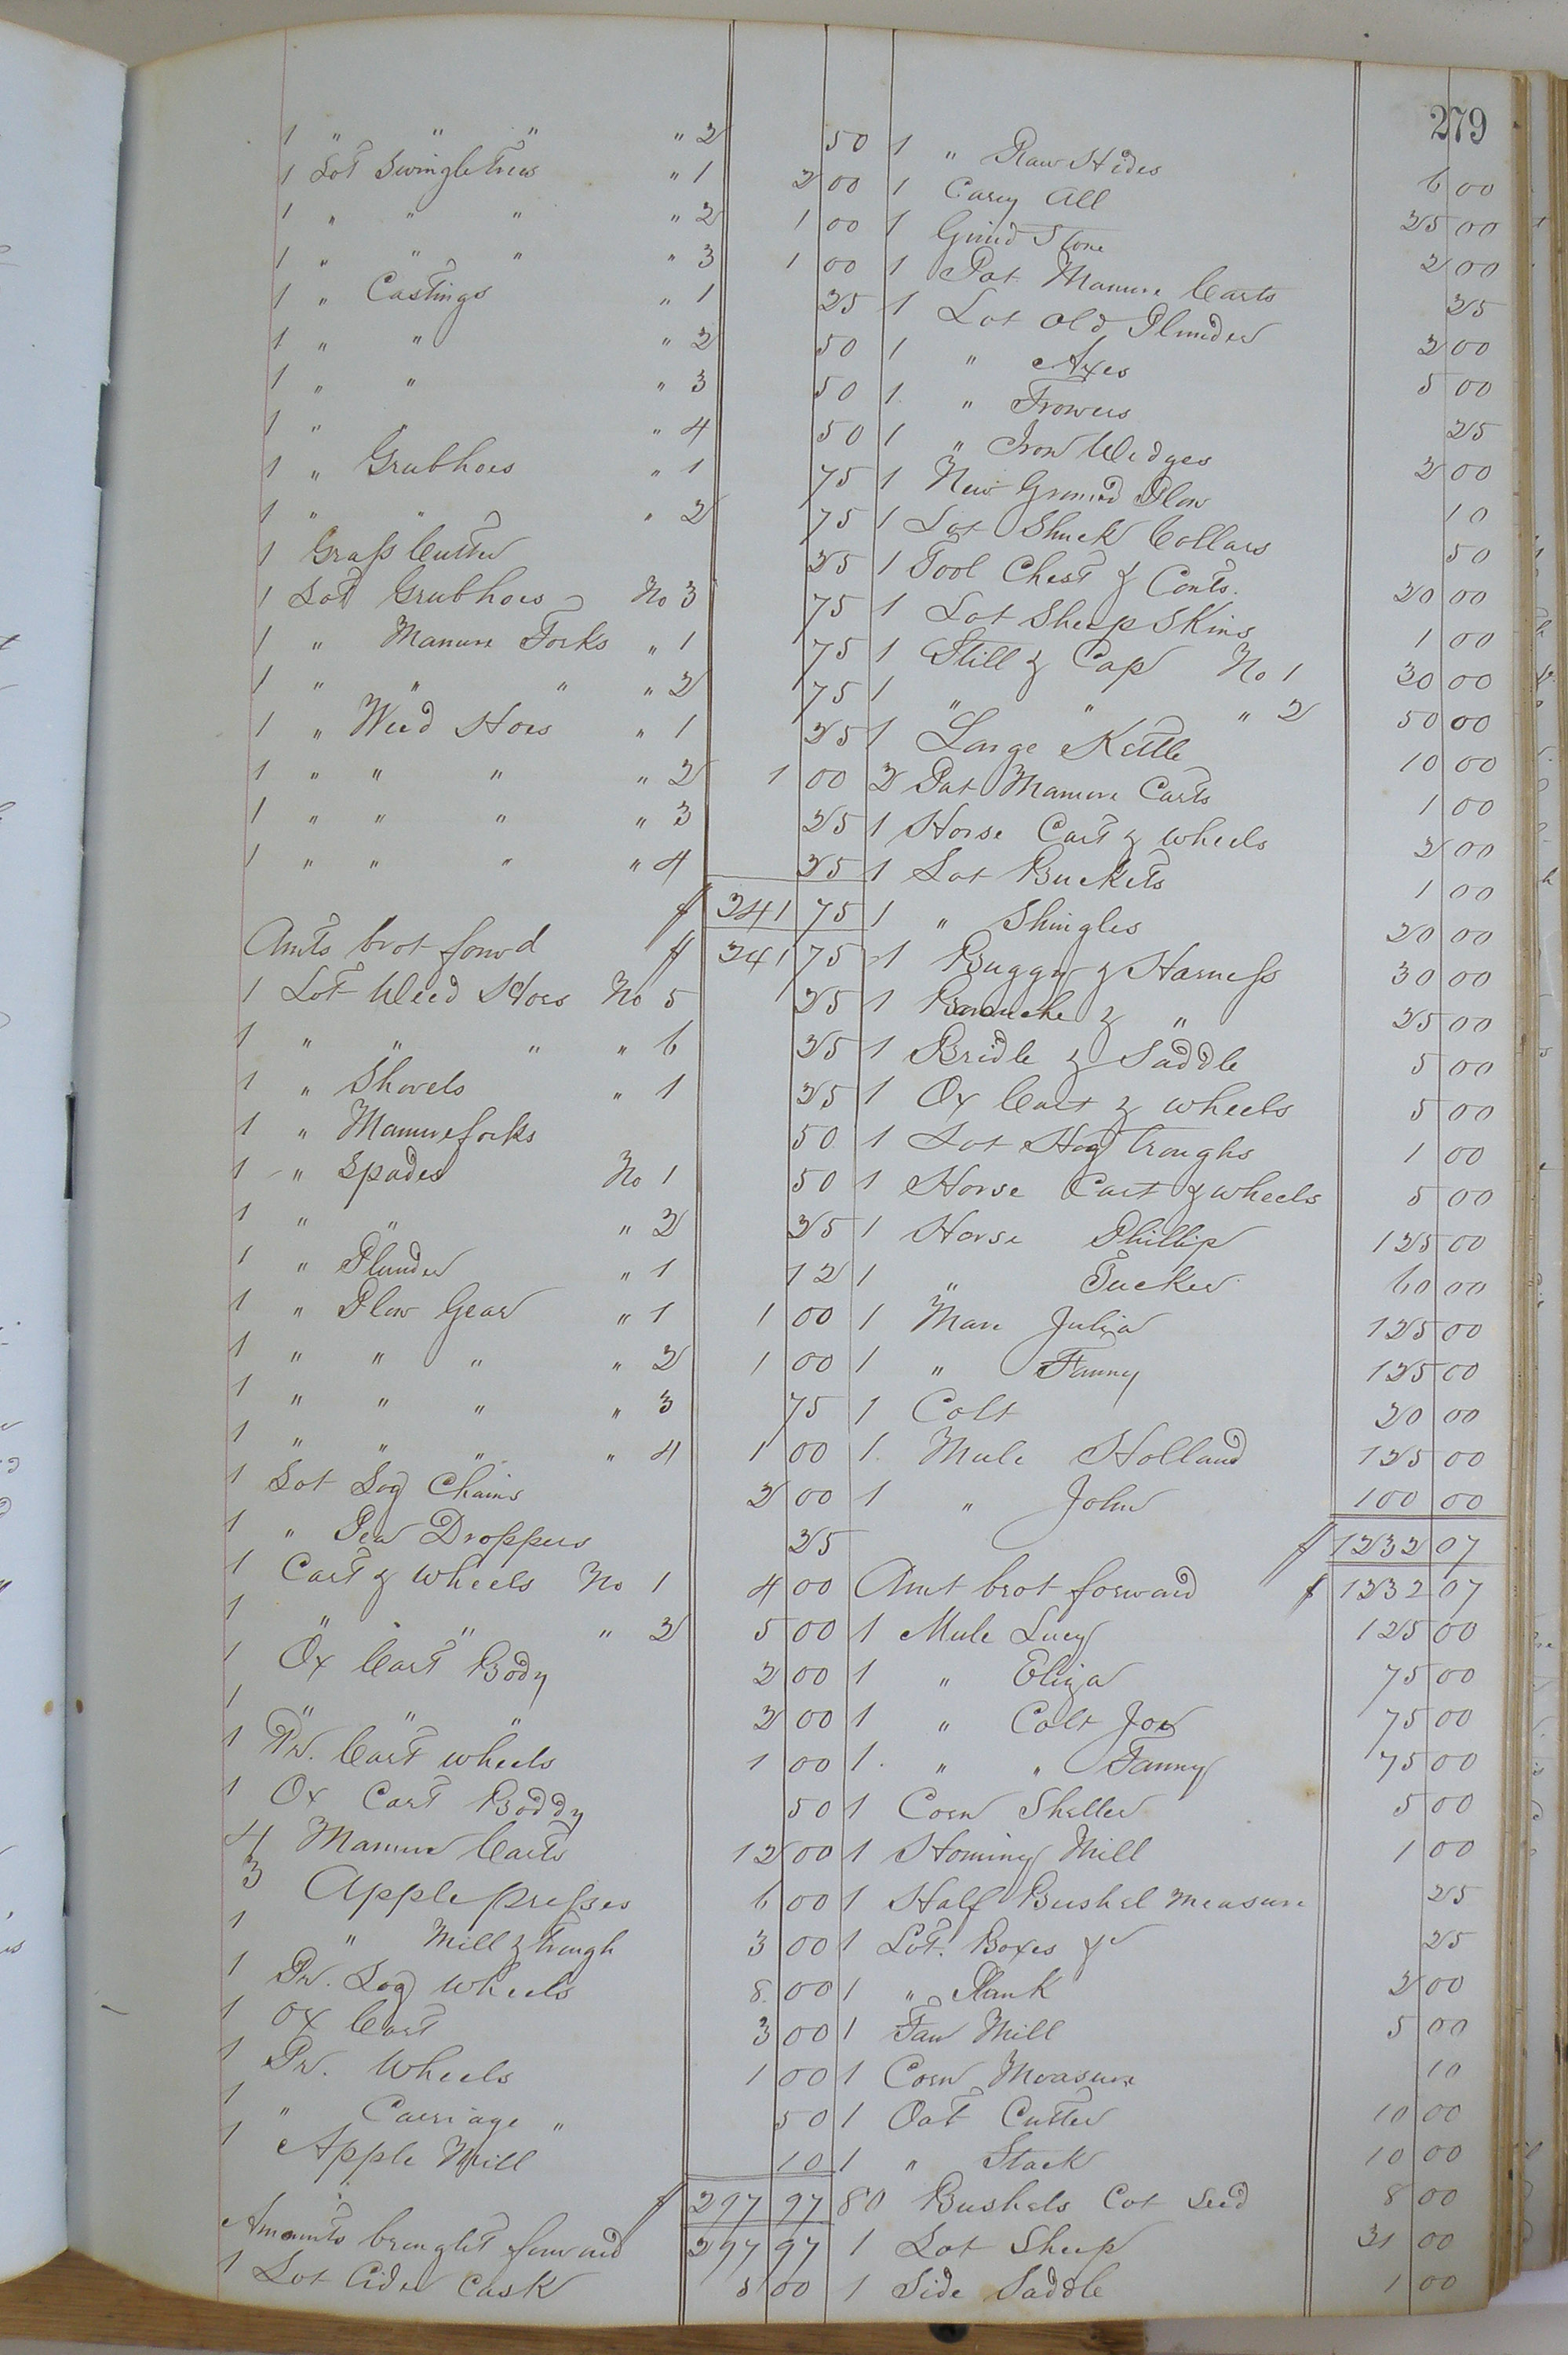 279
1 " " " " 2 50
1 Lot Swingletrees " 1 2 00
1 " " " " 2 1 00
1 " " " " 3 1 00
1 " Castings " 1 25
1 " " " 2 50
1 " " " 3 50
1 " " " 4 50
1 " Grubhoes " 1 75
1 " " " 2 75
1 Grass Cutter 25
1 Lot Grubhoes No 3 75
1 " Manure Forks " 1 75
1 " " " " 2 75
1 " Weed Hoes " 1 25
1 " " " " 2 1 00
1 " " " " 3 25
1 " " " " 4 25
$ 241 75
Amts brot forwd $ 241 75
1 Lot Weed Hoes No 5 25
1 " " " " 6 25
1 " Shovels " 1 25
1 " Manureforks 50
1 " Spades No 1 50
1 " " " 2 25
1 " Plunder " 1 12
1 " Plow Gear " 1 1 00
1 " " " " 2 1 00
1 " " " " 3 75
1 " " " " 4 1 00
1 Lot Log Chains 2 00
1 " Pea Droppers 25
1 Cart & Wheels No 1 4 00
1 " " " 2 5 00
1 Ox Cart Body 2 00
1 " " " 2 00
1 Pr. Cart wheels 1 00
1 Ox Cart Boddy 50
4 Manure Carts 12 00
3 Apple presses 6 00
1 " Mill & Trough 3 00
1 Pr. Log Wheels 8 00
1 Ox Cart 3 00
1 Pr. Wheels 1 00
1 " Carriage " 50
1 Apple Mill 10
$ 297 97
Amounts brought forward 297 97
1 Lot Cider Cask 5 00
1 " Raw Hides 6 00
1 Carry All 25 00
1 Grind Stone 2 00
1 Pat Manure Carts 25
1 Lot Old Plunder 2 00
1 " Axes 5 00
1 " Frowers 25
1 " Iron Wedges 2 00
1 New Ground Plow 10
1 Lot Shuck Collars 50
1 Tool Chest & Conts. 20 00
1 Lot Sheep Skins 1 00
1 Still & Cap No 1 30 00
1 " " " 2 50 00
1 Large Kettle 10 00
2 Pat Manure Carts 1 00
1 Horse Cart & wheels 2 00
1 Lot Buckets 1 00
1 " Shingles 20 00
1 Buggy & Harness 30 00
1 Barouche & " 25 00
1 Bridle & Saddle 5 00
1 Ox Cart & wheels 5 00
1 Lot Hog Troughs 1 00
1 Horse Cart & wheels 5 00
1 Horse Phillip 125 00
1 " Tucker 60 00
1 Mare Julia 125 00
1 " Fanny 125 00
1 Colt 20 00
1 Mule Holland 125 00
1 " John 100 00
$ 1232 07
Amt brot forward $ 1232 07
1 Mule Lucy 125 00
1 " Eliza 75 00
1 " Colt Joe 75 00
1 " " Fanny 75 00
1 Corn Sheller 5 00
1 Hominy Mill 1 00
1 Half Bushel Measure 25
1 Lot. Boxes &c 25
1 " Plank 2 00
1 Fan Mill 5 00
1 Corn Measure 10
1 Oat Cutter 10 00
1 " Stack 10 00
80 Bushels Cot Seed 8 00
1 Lot Sheep 31 00
1 Side Saddle 1 00